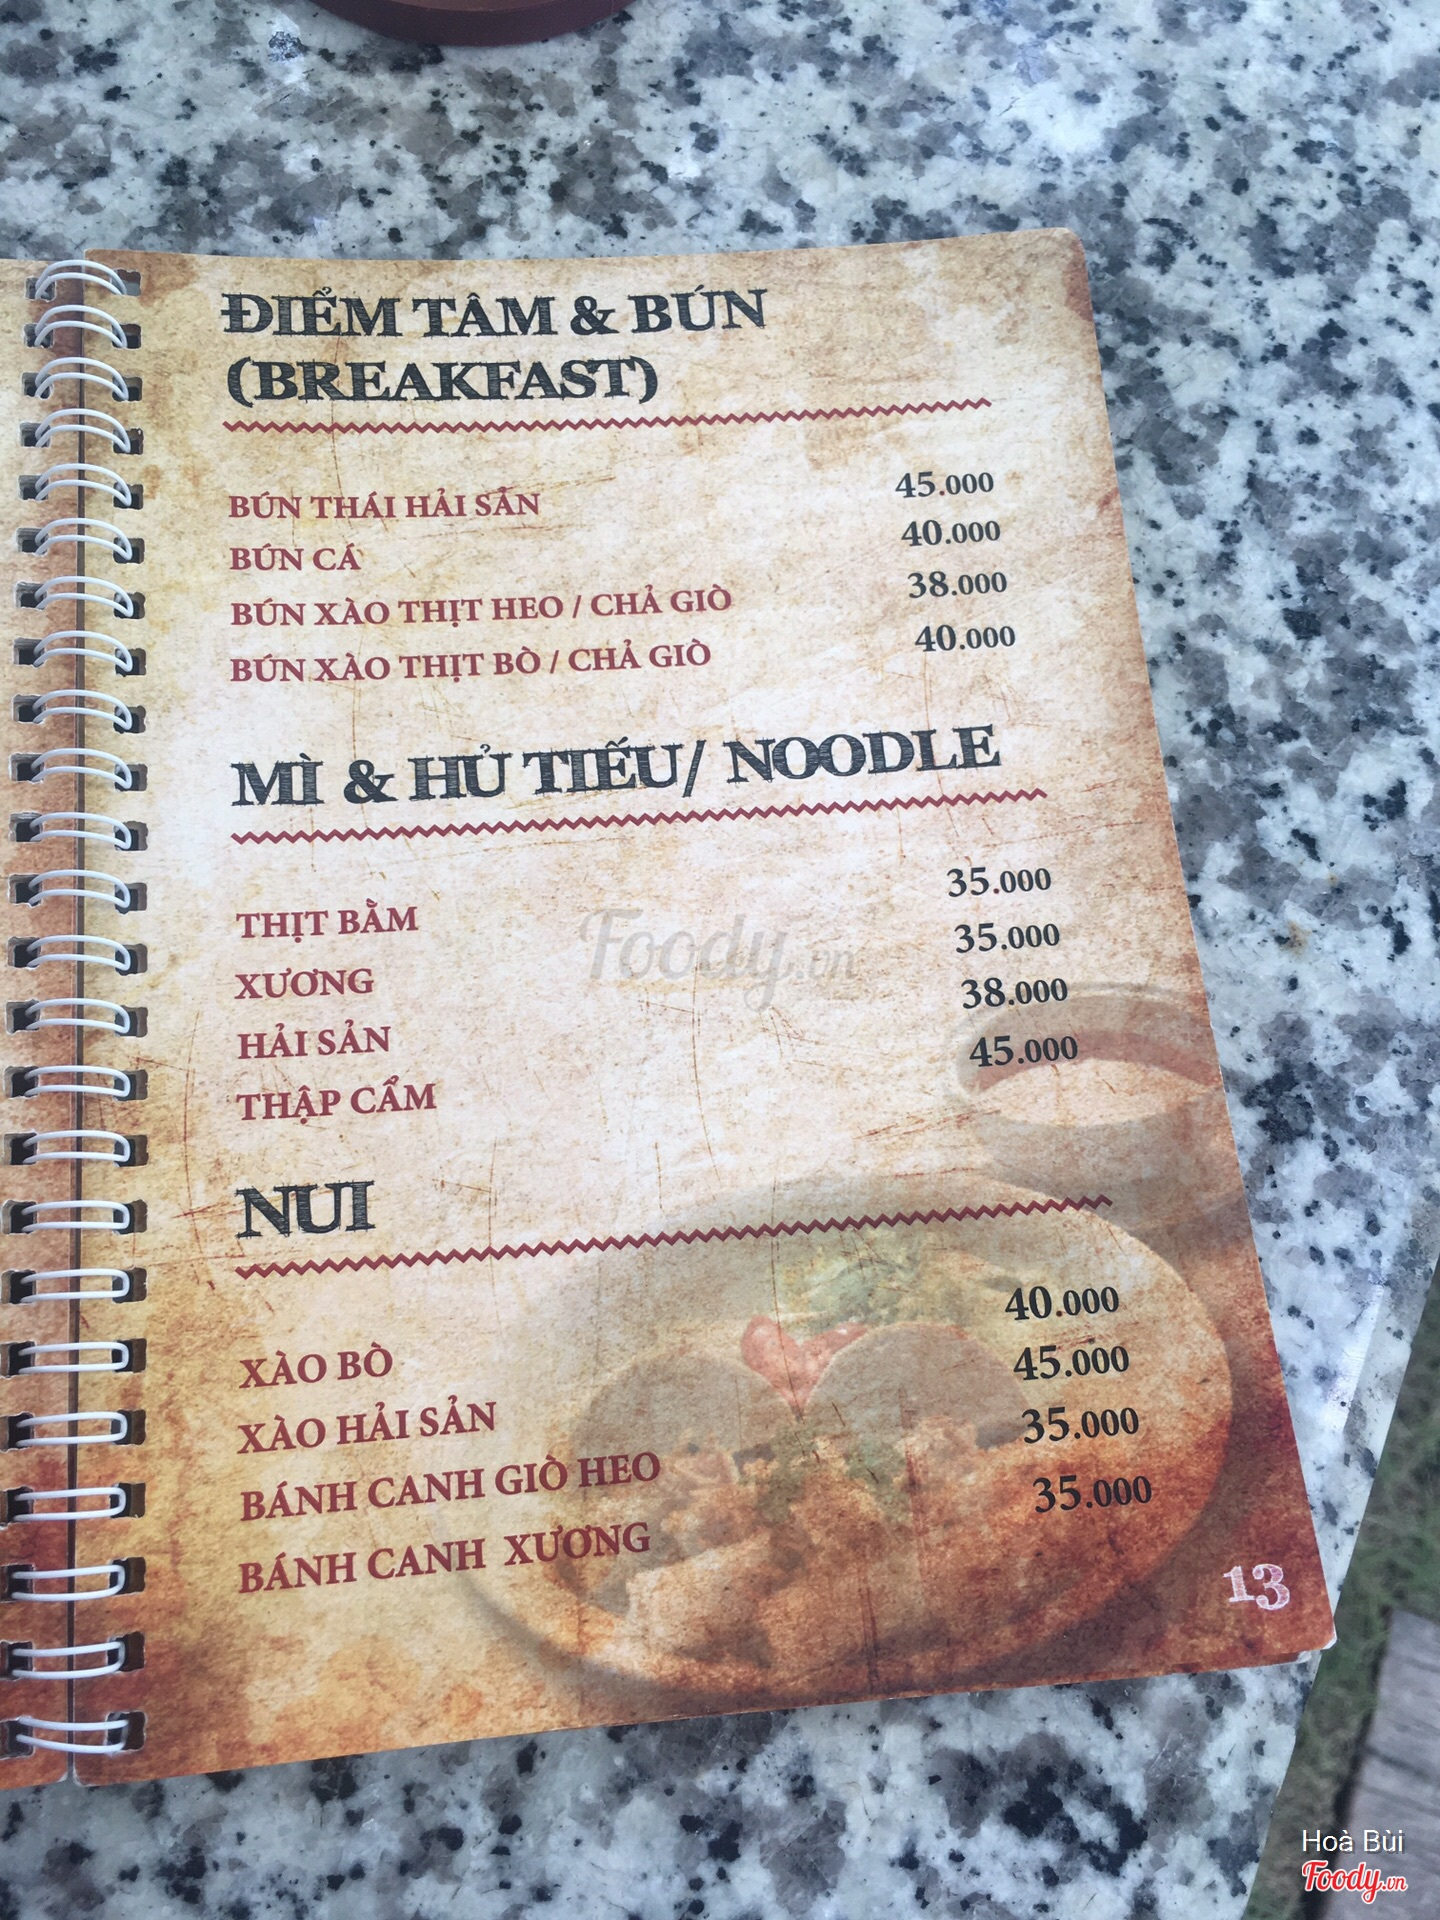 ĐIỂM TÂM & BÚN
(BREAKFAST)
BÚN THÁI HẢI SẢN 45.000
BÚN CÁ 40.000
BÚN XÀO THỊT HEO / CHẢ GIÒ 38.000
BÚN XÀO THỊT BÒ / CHẢ GIÒ 40.000
MÌ & HỦ TIẾU/ NOODLE
THỊT BẰM 35.000
XƯƠNG 35.000
HẢI SẢN 38.000
THẬP CẨM 45.000
Foody.vn
NUI
XÀO BÒ 40.000
XÀO HẢI SẢN 45.000
BÁNH CANH GIÒ HEO 35.000
BÁNH CANH XƯƠNG 35.000
13
Hoà Bùi
Foody.vn